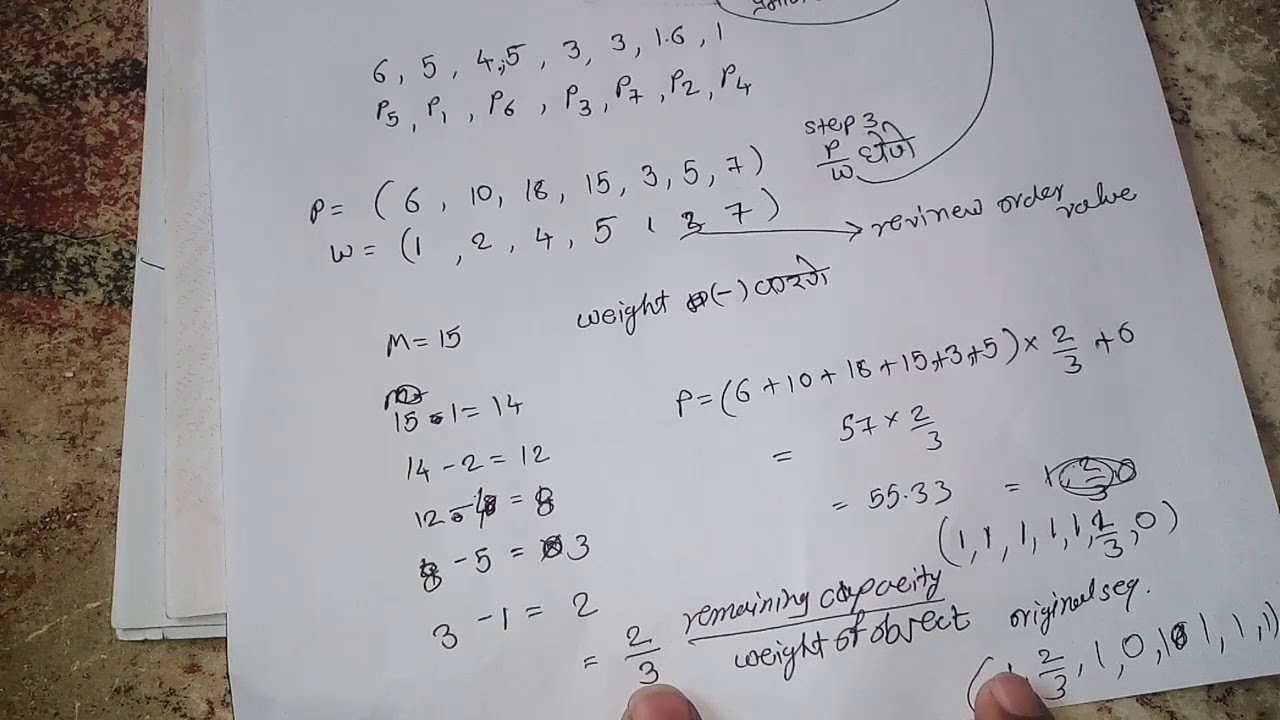 6, 5, 4,5, 3, 3, 1.6, 1
P5, P1, P6, P3, P7, P2, P4
step 3
P/W घेणे
P = (6, 10, 18, 15, 3, 5, 7)
W = (1, 2, 4, 5 1 3 7)
revinew order value
weight (-) करणे
M = 15
15 - 1 = 14
14 - 2 = 12
12 - 4 = 8
8 - 5 = 3
3 - 1 = 2
= 2/3 remaining capacity / weight of obsect
P = (6 + 10 + 18 + 15, +3, +5) × 2/3 + 0
= 57 × 2/3
= 55.33 =
(1, 1, 1, 1, 1, 2/3, 0)
original seq.
2/3, 1, 0, 1, 1, 1, 1)